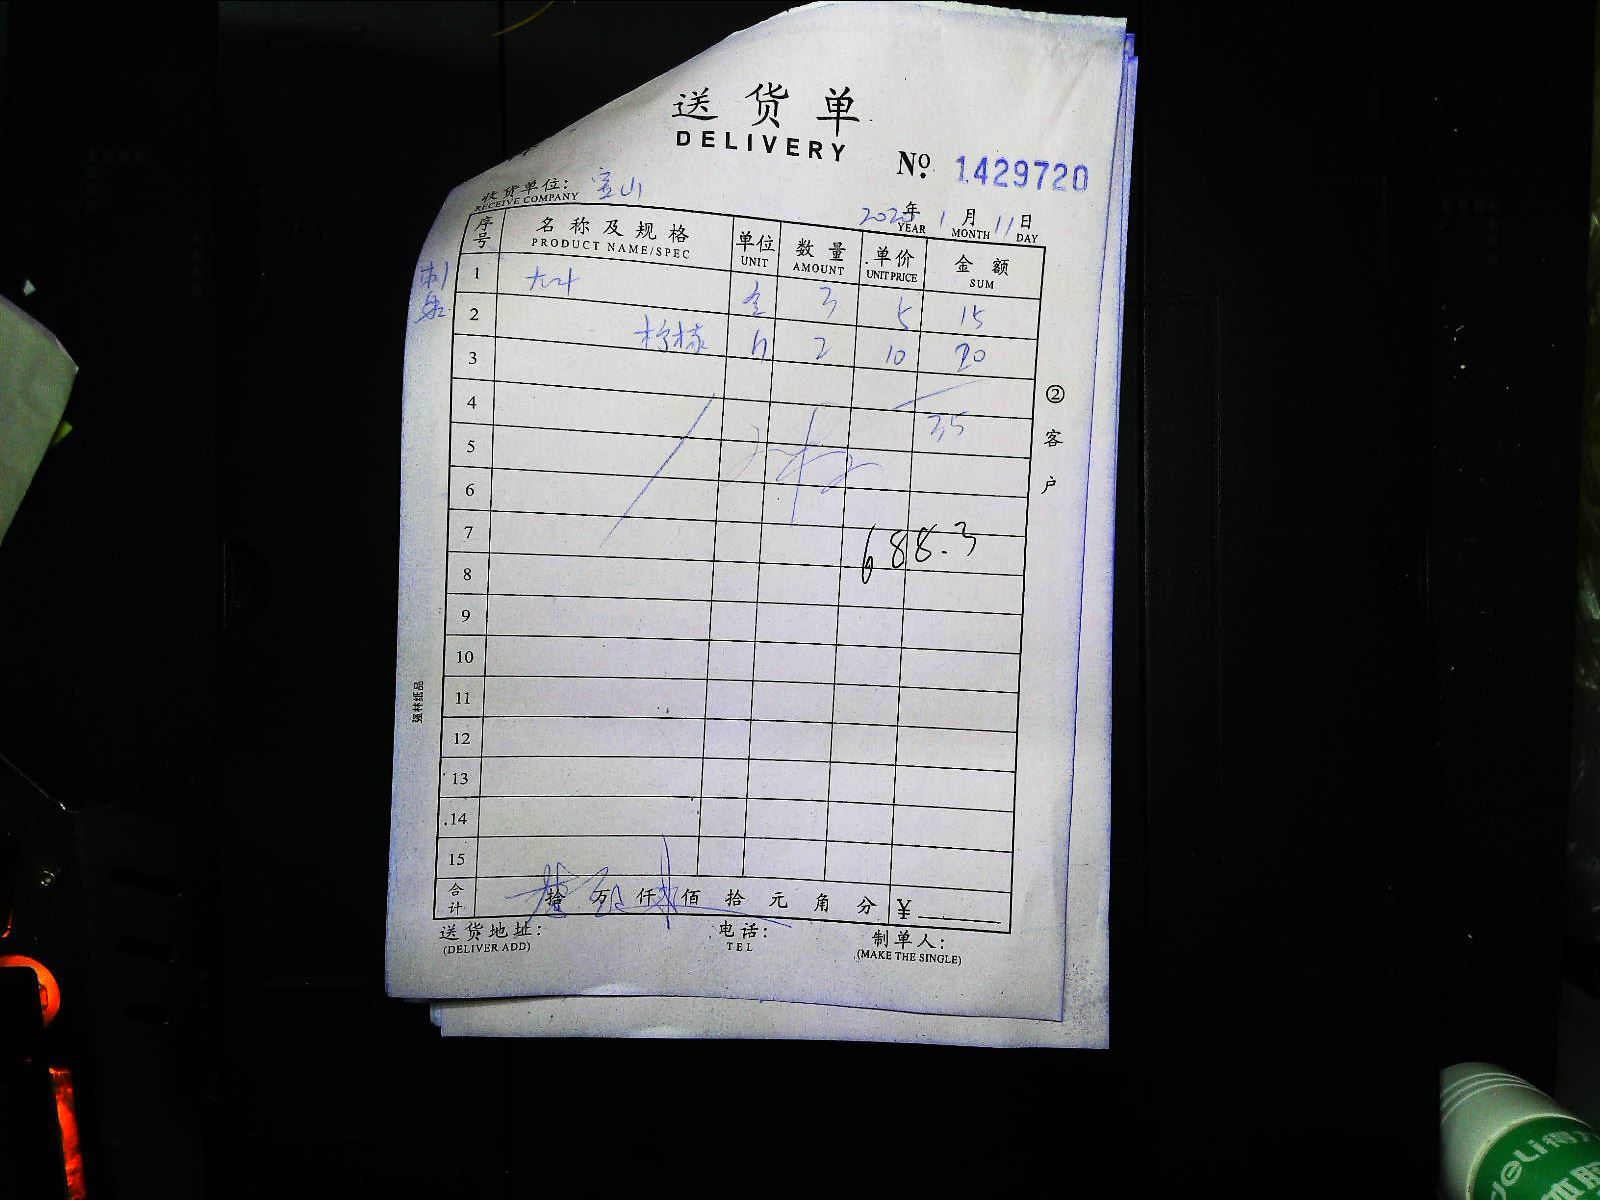 送货单
DELIVERY
№ 1429720
收货单位: 宝山
RECEIVE COMPANY
2025年 1月 11日
YEAR MONTH DAY
序号 名称及规格 单位 数量 单价 金额
PRODUCT NAME/SPEC UNIT AMOUNT UNIT PRICE SUM
1 3 5 15
2 柠檬 2 10 20
3
4 35
5
6
7 688.3
8
9
10
11
12
13
14
15
合计 拾 万 仟 佰 拾 元 角 分 ¥
送货地址: 电话: 制单人:
(DELIVER ADD) TEL (MAKE THE SINGLE)
②客户
强林纸品
deli得力